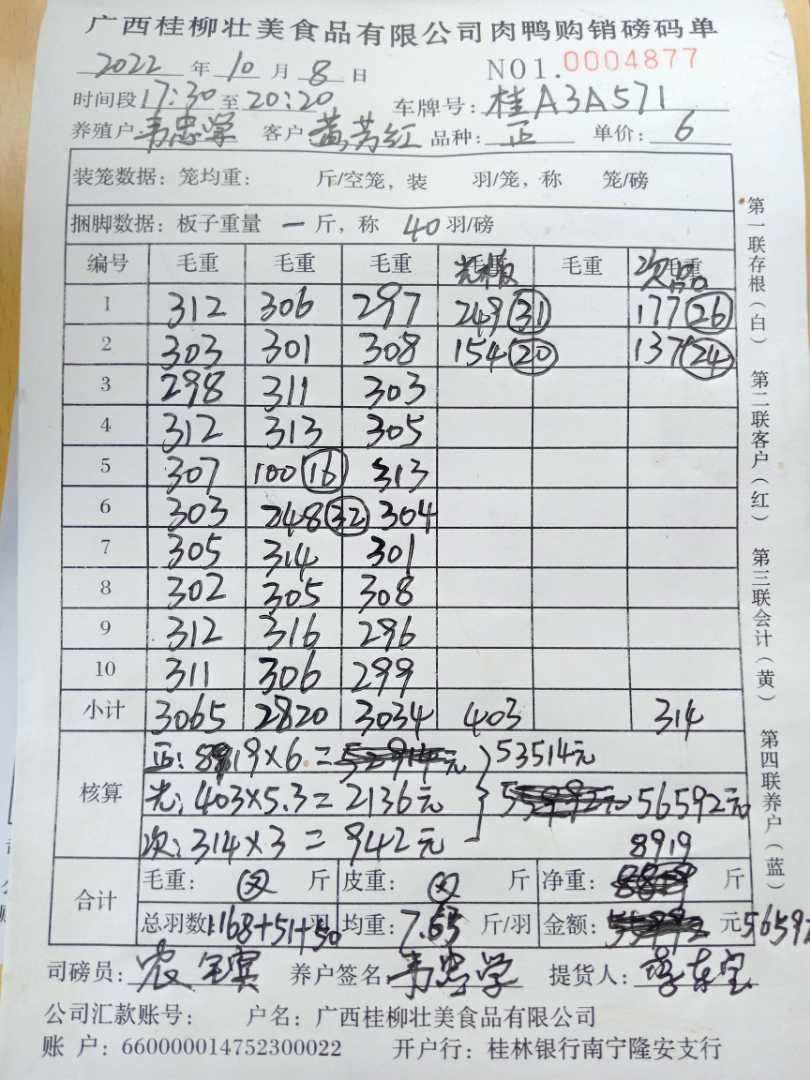 广西桂柳壮美食品有限公司肉鸭购销磅码单
2022 年 10 月 8 日 NO1.0004877
时间段 17:30 至 20:20 车牌号: 桂A3A571
养殖户 韦忠学 客户 黄芳红 品种: 正 单价: 6
装笼数据: 笼均重: 斤/空笼, 装 羽/笼, 称 笼/磅
捆脚数据: 板子重量 一 斤, 称 40 羽/磅
编号 毛重 毛重 毛重 毛重 次品
1 312 306 297 249 31 177 26
2 303 301 308 154 20 137 24
3 298 311 303
4 312 313 305
5 307 100 16 313
6 303 248 32 304
7 305 314 301
8 302 305 308
9 312 316 296
10 311 306 299
小计 3065 2820 3034 403 314
核算
正: 8919×6 = 53514元
光: 403×5.3 = 2136元 56592元
次: 314×3 = 942元
8919
合计 毛重: 斤 皮重: 斤 净重: 斤
总羽数: 1168+51+50 羽 均重: 7.63 斤/羽 金额: 元 5659
司磅员: 农 养户签名 韦忠学 提货人:
公司汇款账号: 户名: 广西桂柳壮美食品有限公司
账 户: 660000014752300022 开户行: 桂林银行南宁隆安支行
第一联存根(白) 第二联客户(红) 第三联会计(黄) 第四联养户(蓝)